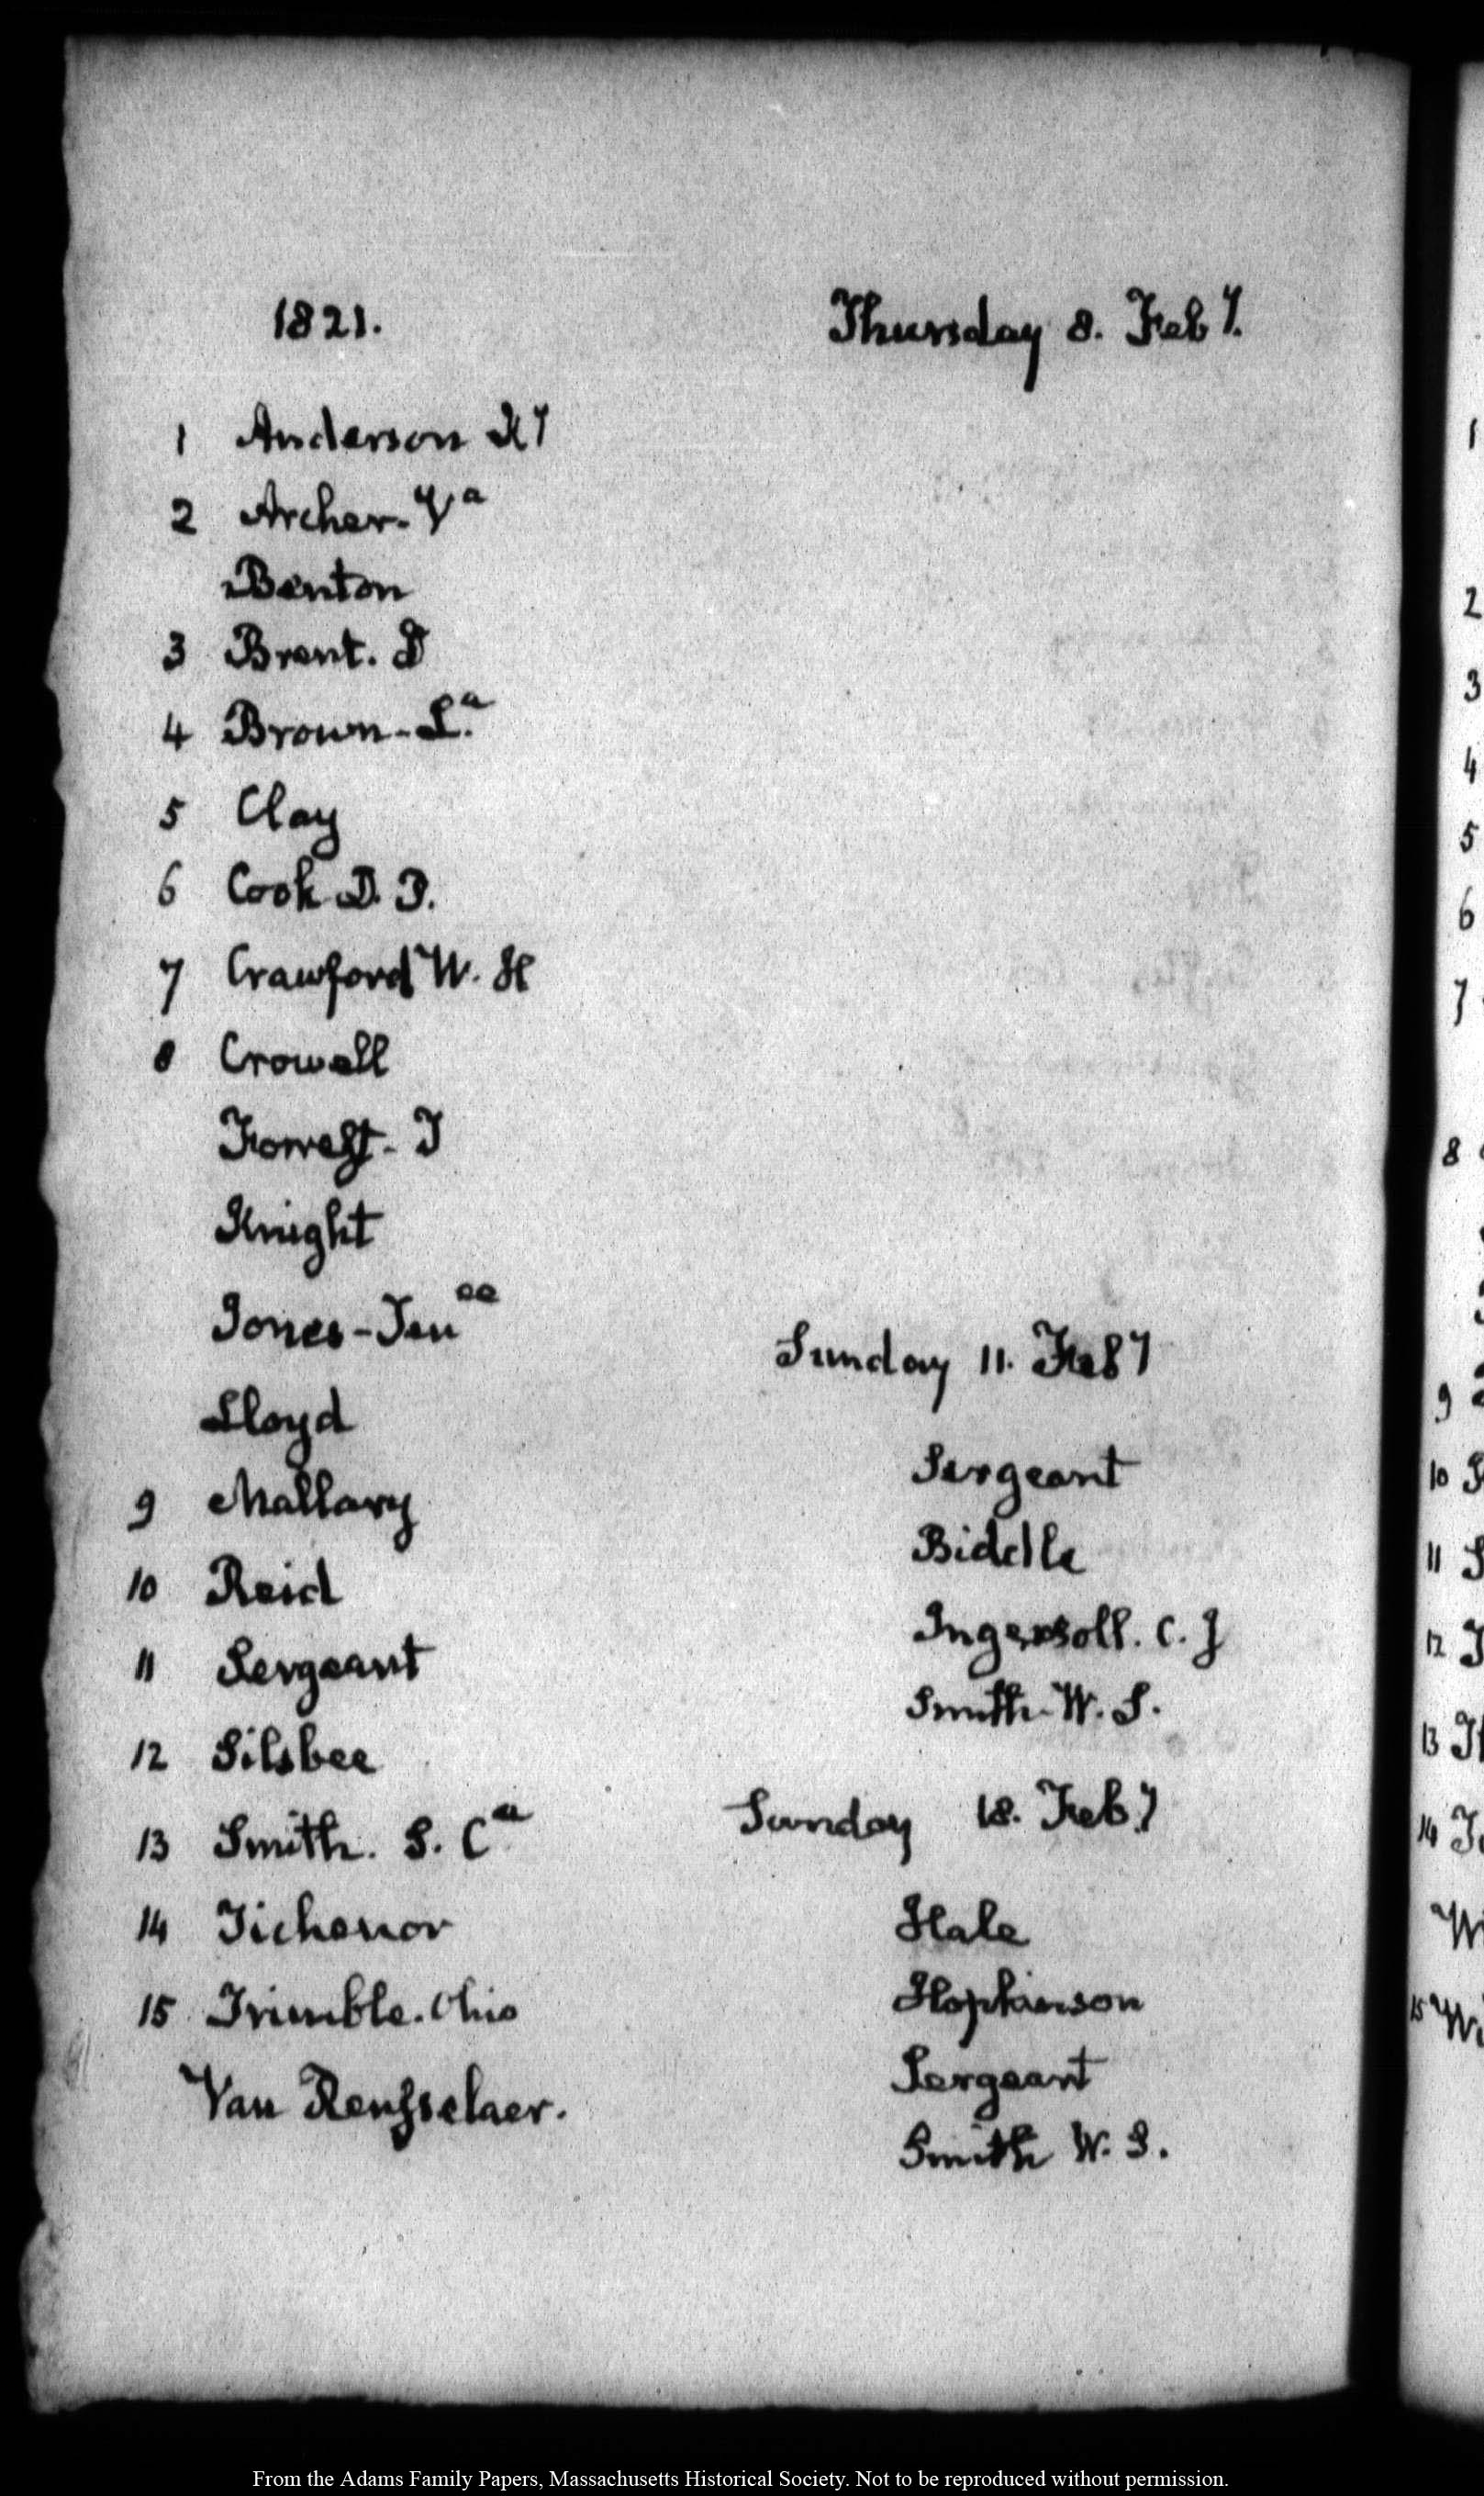 1821. Thursday 8. Feby.
1 Anderson Ky
2 Archer-Va
Benton
3 Brent. D
4 Brown-La.
5 Clay
6 Cook D. P.
7 Crawford W. H
8 Crowell
Forrest- T
Knight
Jones-Tenee
Lloyd
9 Mallary
10 Reid
11 Sergeant
12 Silsbee
13 Smith. S. Ca
14 Tichenor
15 Trimble. Ohio
Van Rensselaer.
Sunday 11. Feby
Sergeant
Biddle
Ingersoll. C. J
Smith-W. S.
Sunday 18. Feby
Hale
Hopkinson
Sergeant
Smith W. S.
1
2
3
4
5
6
7
8
9
10
11
12
13
14
15
From the Adams Family Papers, Massachusetts Historical Society. Not to be reproduced without permission.